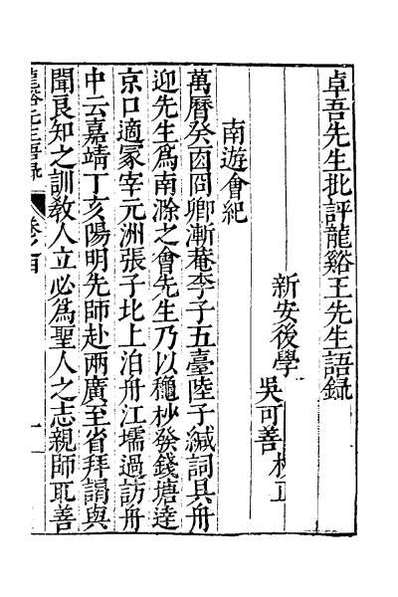 卓吾先生批評龍谿王先生語録
新安後學
吳可善 校正
南遊會紀
萬曆癸酉冏卿漸菴李子五臺陸子緘詞具舟
迎先生爲南滁之會先生乃以穐杪發錢塘逹
京口適冢宰元洲張子北上泊舟江壖過訪舟
中云嘉靖丁亥陽明先師赴兩廣至省拜謁與
聞良知之訓敎人立必爲聖人之志親師取善
龍谿先生語録